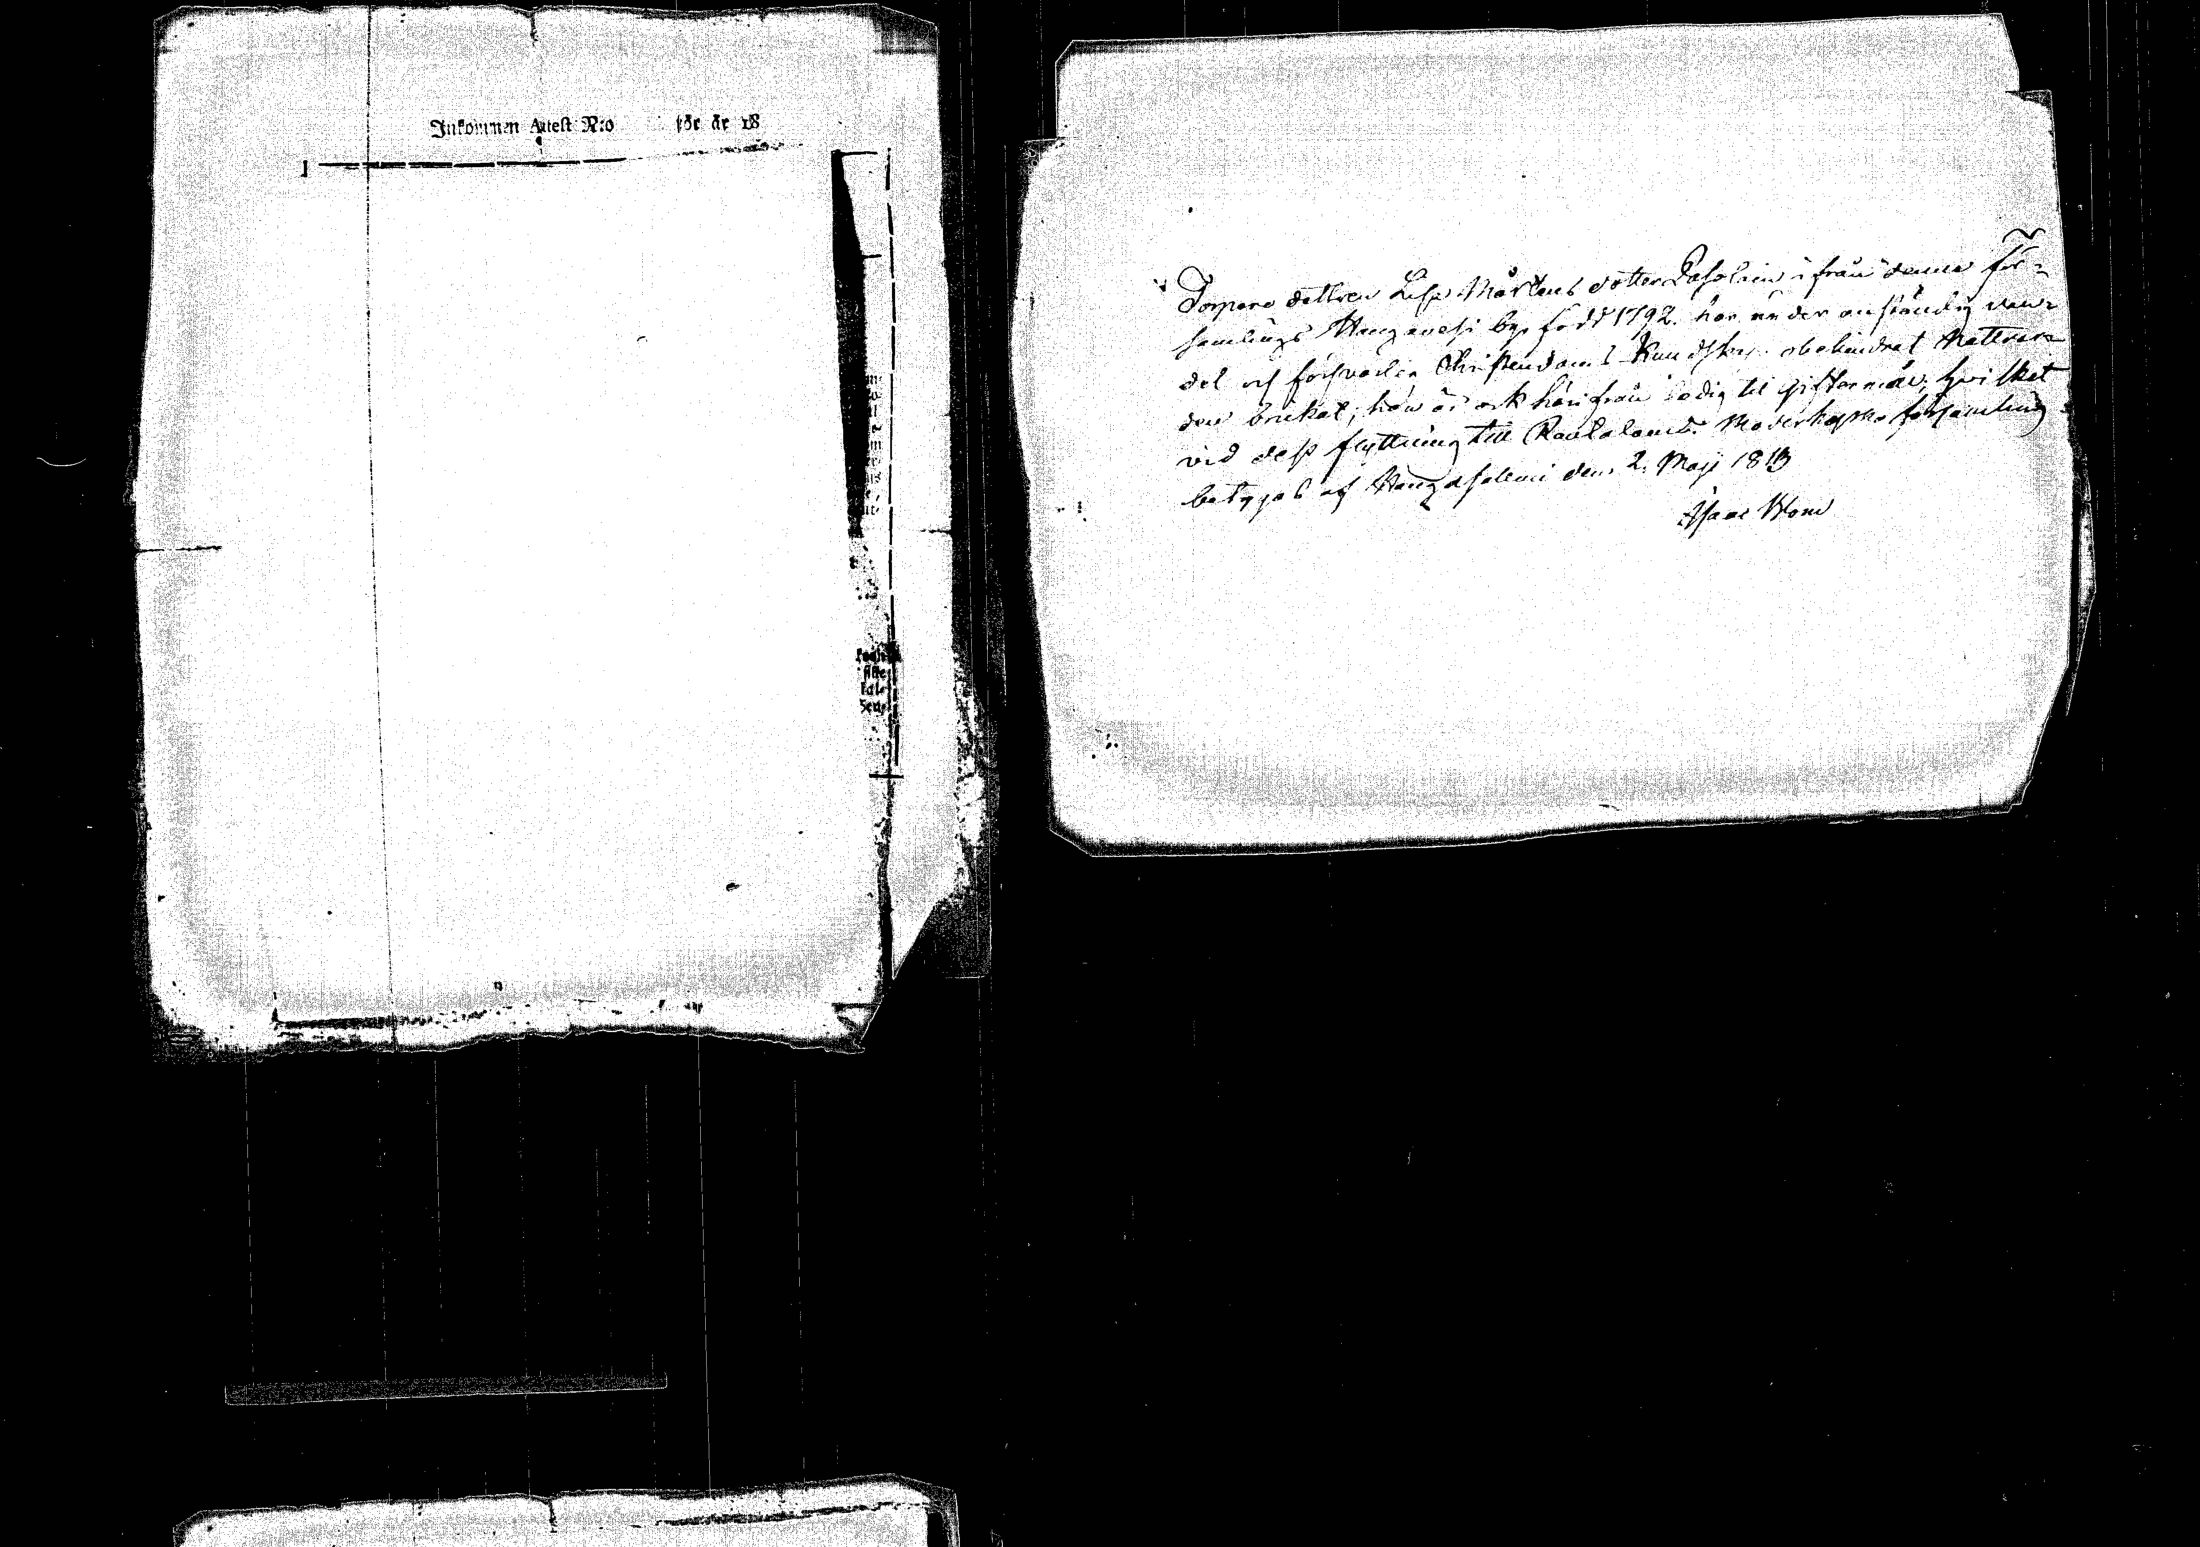 Inkommen Attest N:o för år 18
Torpare dottren Lisa Mårtens dotter Laholain ifrån denna för-
samlings Hangavesi by, född 1792. har under anständig van-
del och försvarlig Christendoms Kundskap obehindrat Nattvar-
den brukat; hon är ock härifrån ledig til giftermål; hvilket
vid dess flyttning till Rautalambi Moderkyrko församling
betygas af Hangasalmi den 2. Maji 1813
Isaac